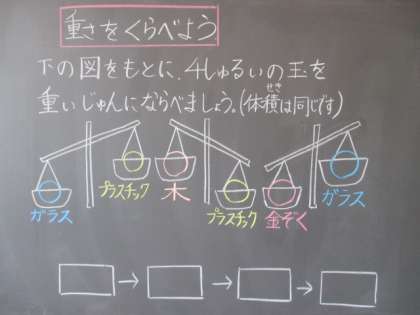 重さをくらべよう
下の図をもとに、4しゅるいの玉を
重いじゅんにならべましょう。(体積は同じです)
せき
ガラス プラスチック 木 プラスチック 金ぞく ガラス